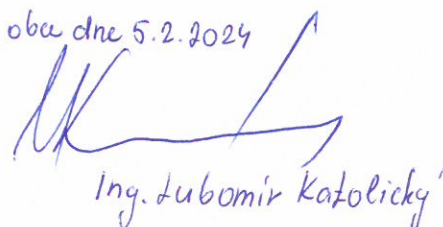 obce dne 5.2.2024
Ing. Lubomír Katolický